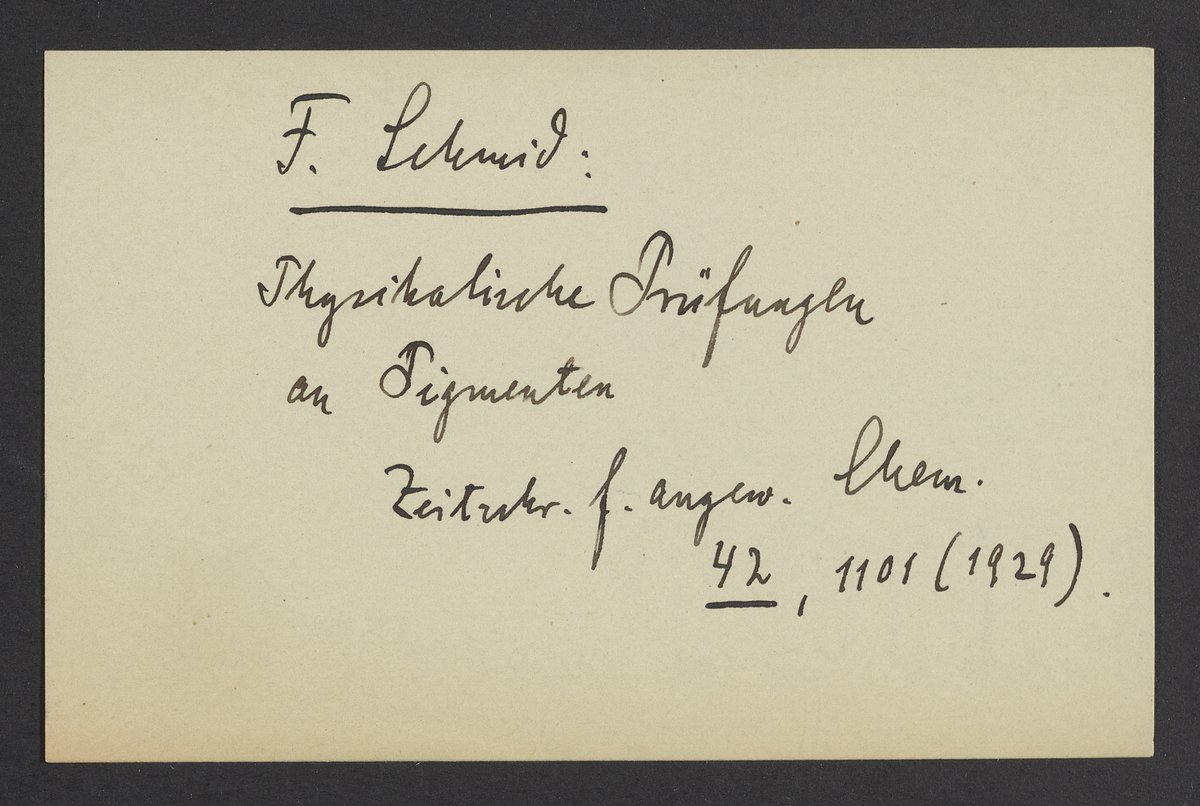 F. Schmid:
Physikalische Prüfungen
an Pigmenten
Zeitschr. f. angew. Chem.
42, 1101 (1929).